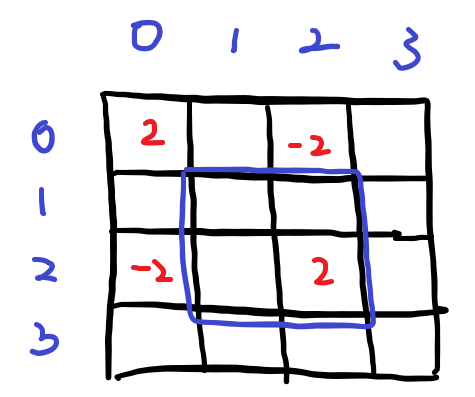 0 1 2 3
0 2 -2
1
2 -2 2
3